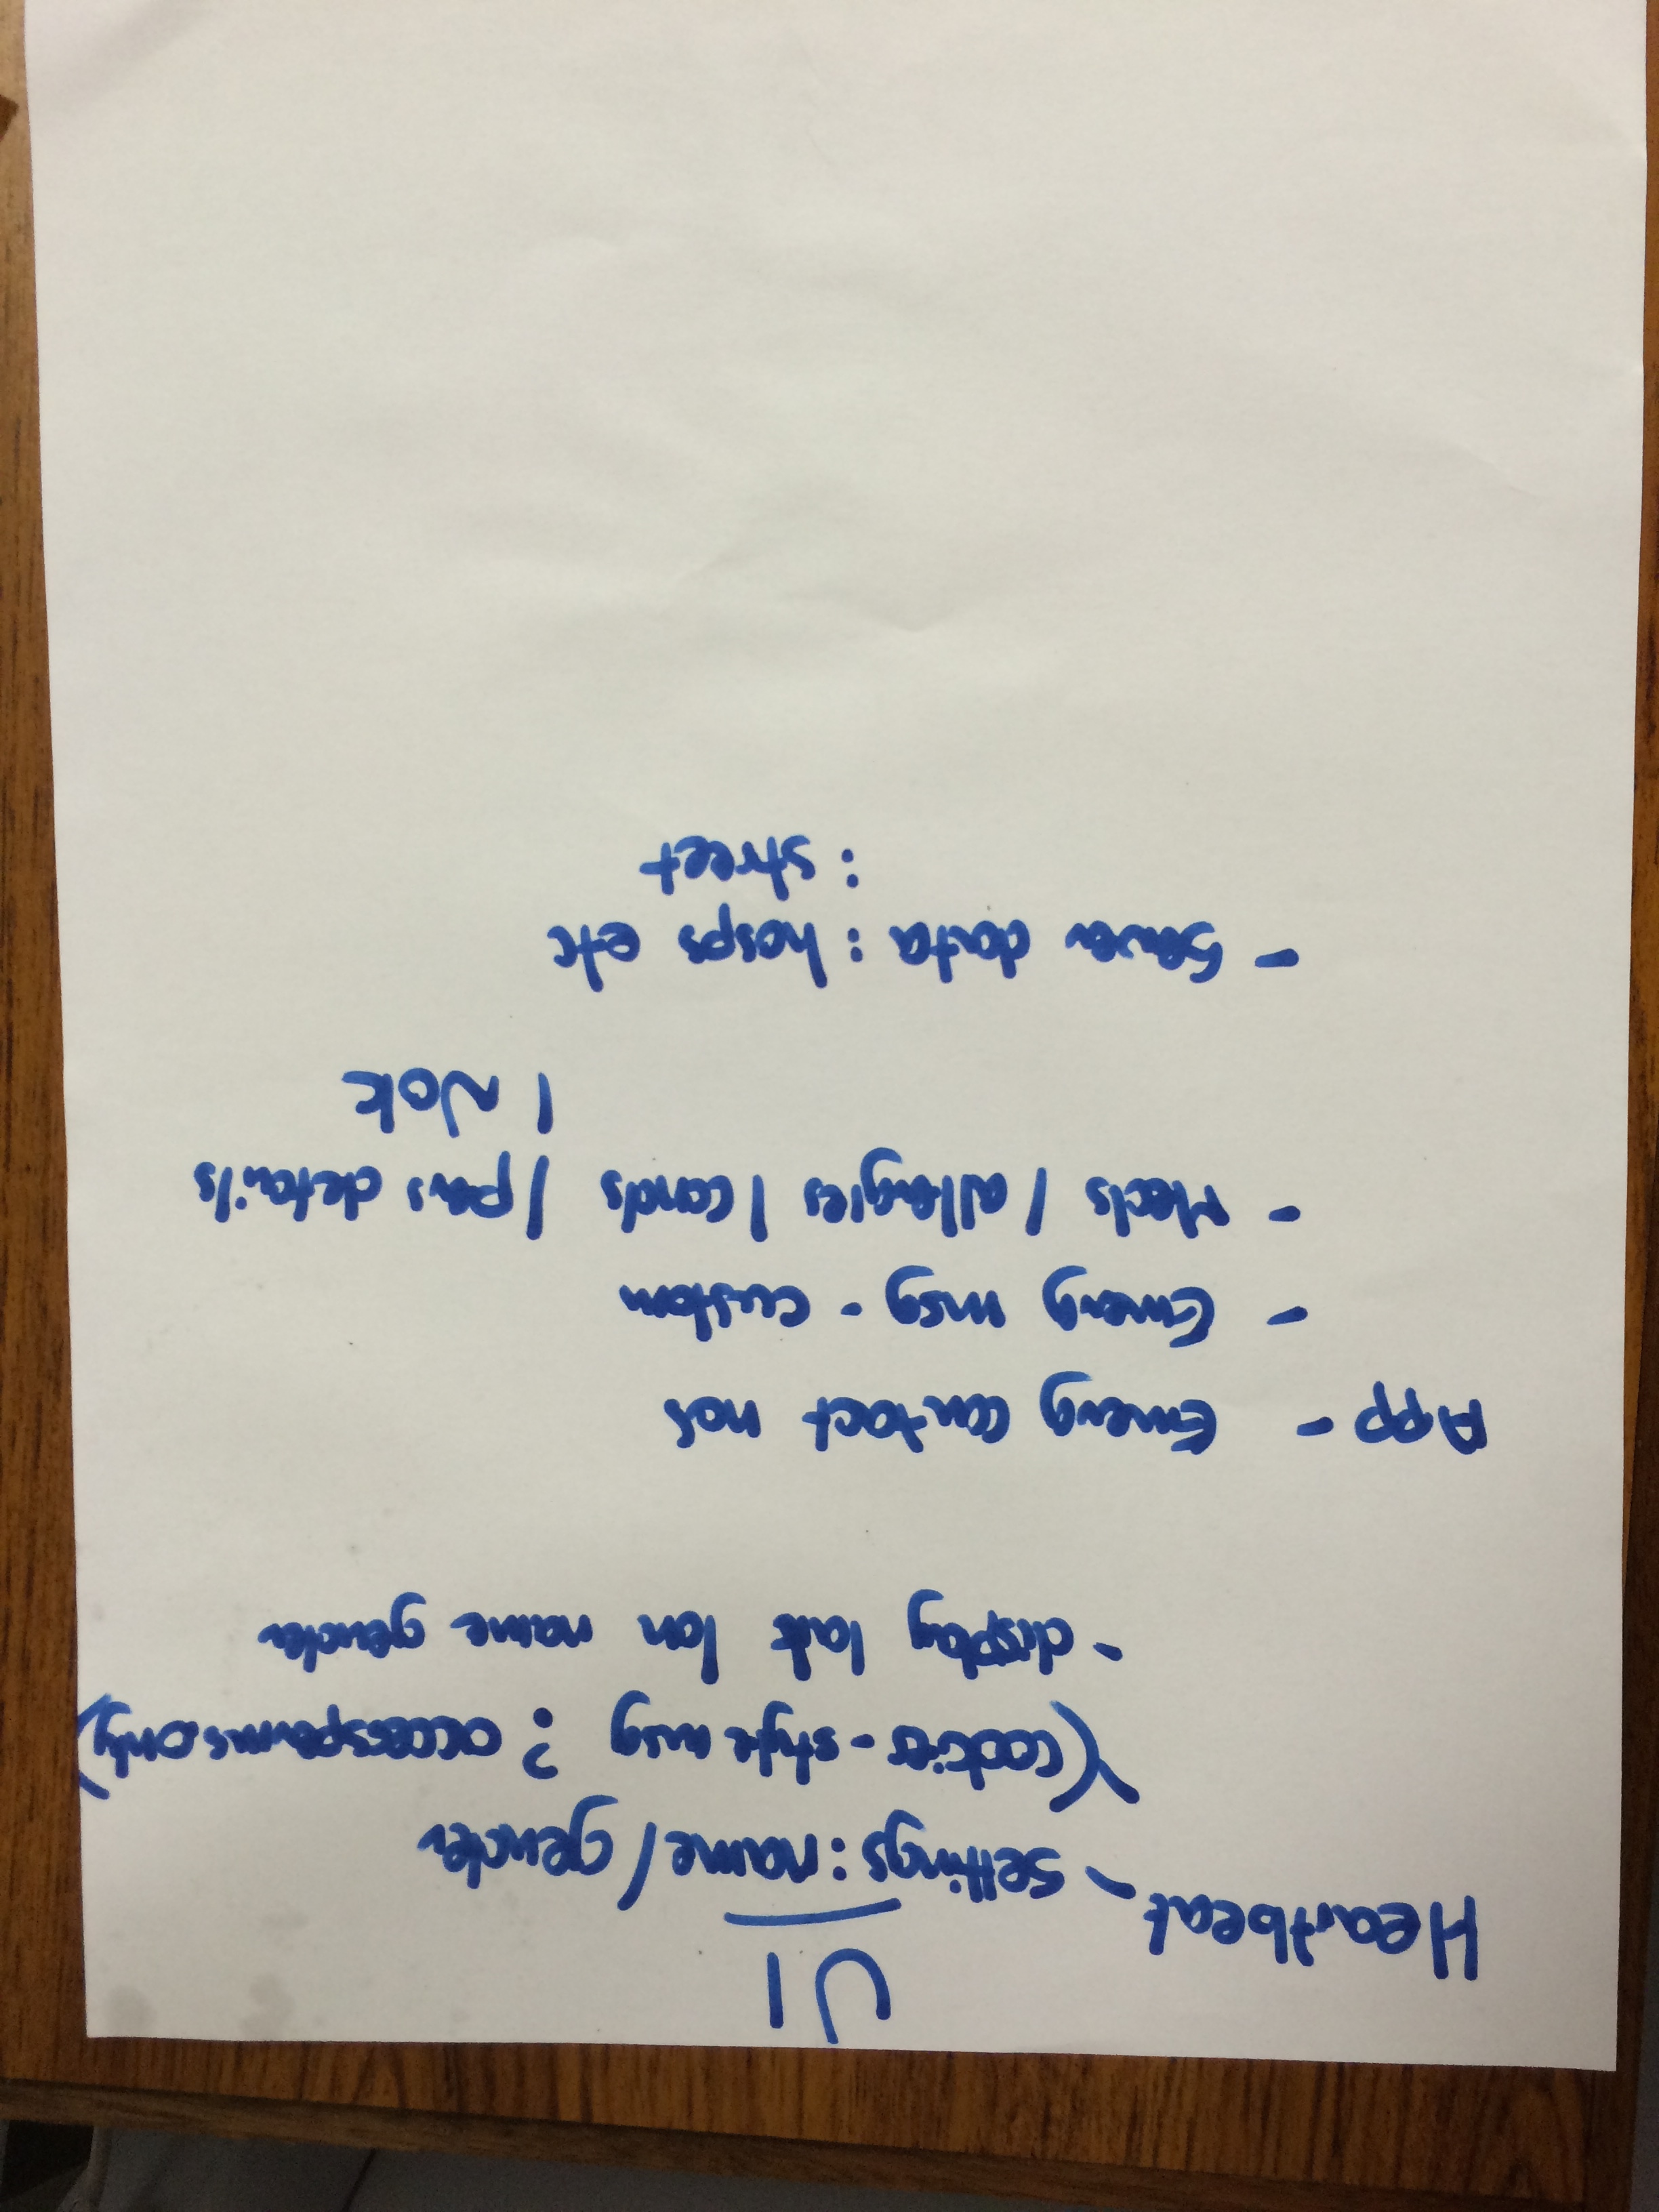 UI
Heartbeat - settings: name/gender
(cookies-style msg : access perms only)
- display lat lon name gender
App - Emerg contact nos
- Emerg msg - custom
- Meds / allergies / conds / pers details
/ NOK
- Server data : hosps etc
: street